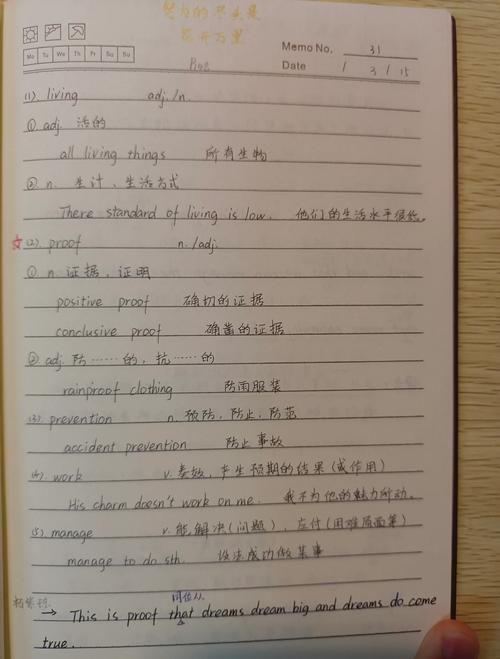 努力的尽头是
花开万里
Mo Tu We Th Fr Sa Su
Memo No. 31
Date / 3 / 15
(1). living adj./n.
① adj. 活的
all living things 所有生物
② n. 生计、生活方式
There standard of living is low. 他们的生活水平很低。
☆(2). proof n./adj.
① n. 证据，证明
positive proof 确切的证据
conclusive proof 确凿的证据
② adj. 防……的，抗……的
rainproof clothing 防雨服装
(3). prevention n. 预防，防止，防范
accident prevention 防止事故
(4). work v. 奏效，产生预期的结果(或作用)
His charm doesn't work on me. 我不为他的魅力所动。
(5). manage v. 能解决(问题)，应付(困难局面等)
manage to do sth. 设法成功做某事
同位从
→ This is proof that dreams dream big and dreams do come
true.